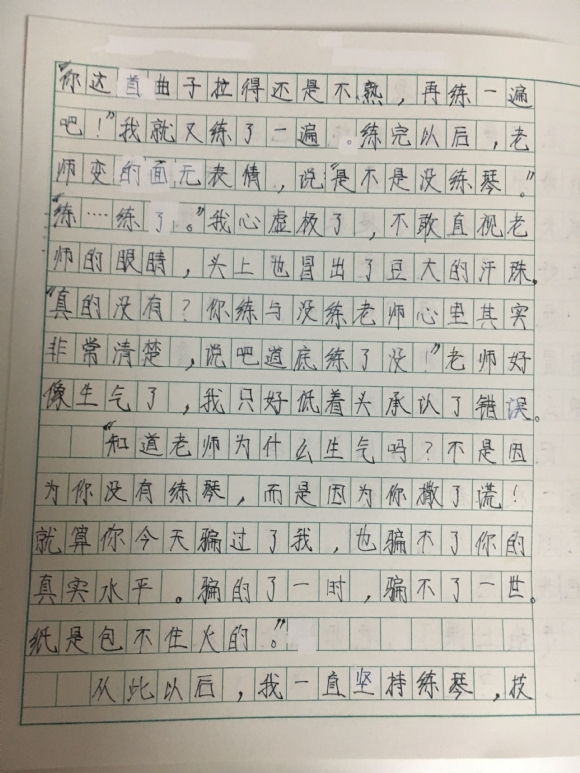 “你这首曲子拉得还是不熟，再练一遍
吧！”我就又练了一遍。练完以后，老
师变的面无表情，说“是不是没练琴。”
“练……练了。”我心虚极了，不敢直视老
师的眼睛，头上也冒出了豆大的汗珠。
“真的没有？你练与没练老师心里其实
非常清楚，说吧道底练了没！”老师好
像生气了，我只好低着头承认了错误。
“知道老师为什么生气吗？不是因
为你没有练琴，而是因为你撒了谎！
就算你今天骗过了我，也骗不了你的
真实水平。骗的了一时，骗不了一世。
纸是包不住火的。”
从此以后，我一直坚持练琴，技